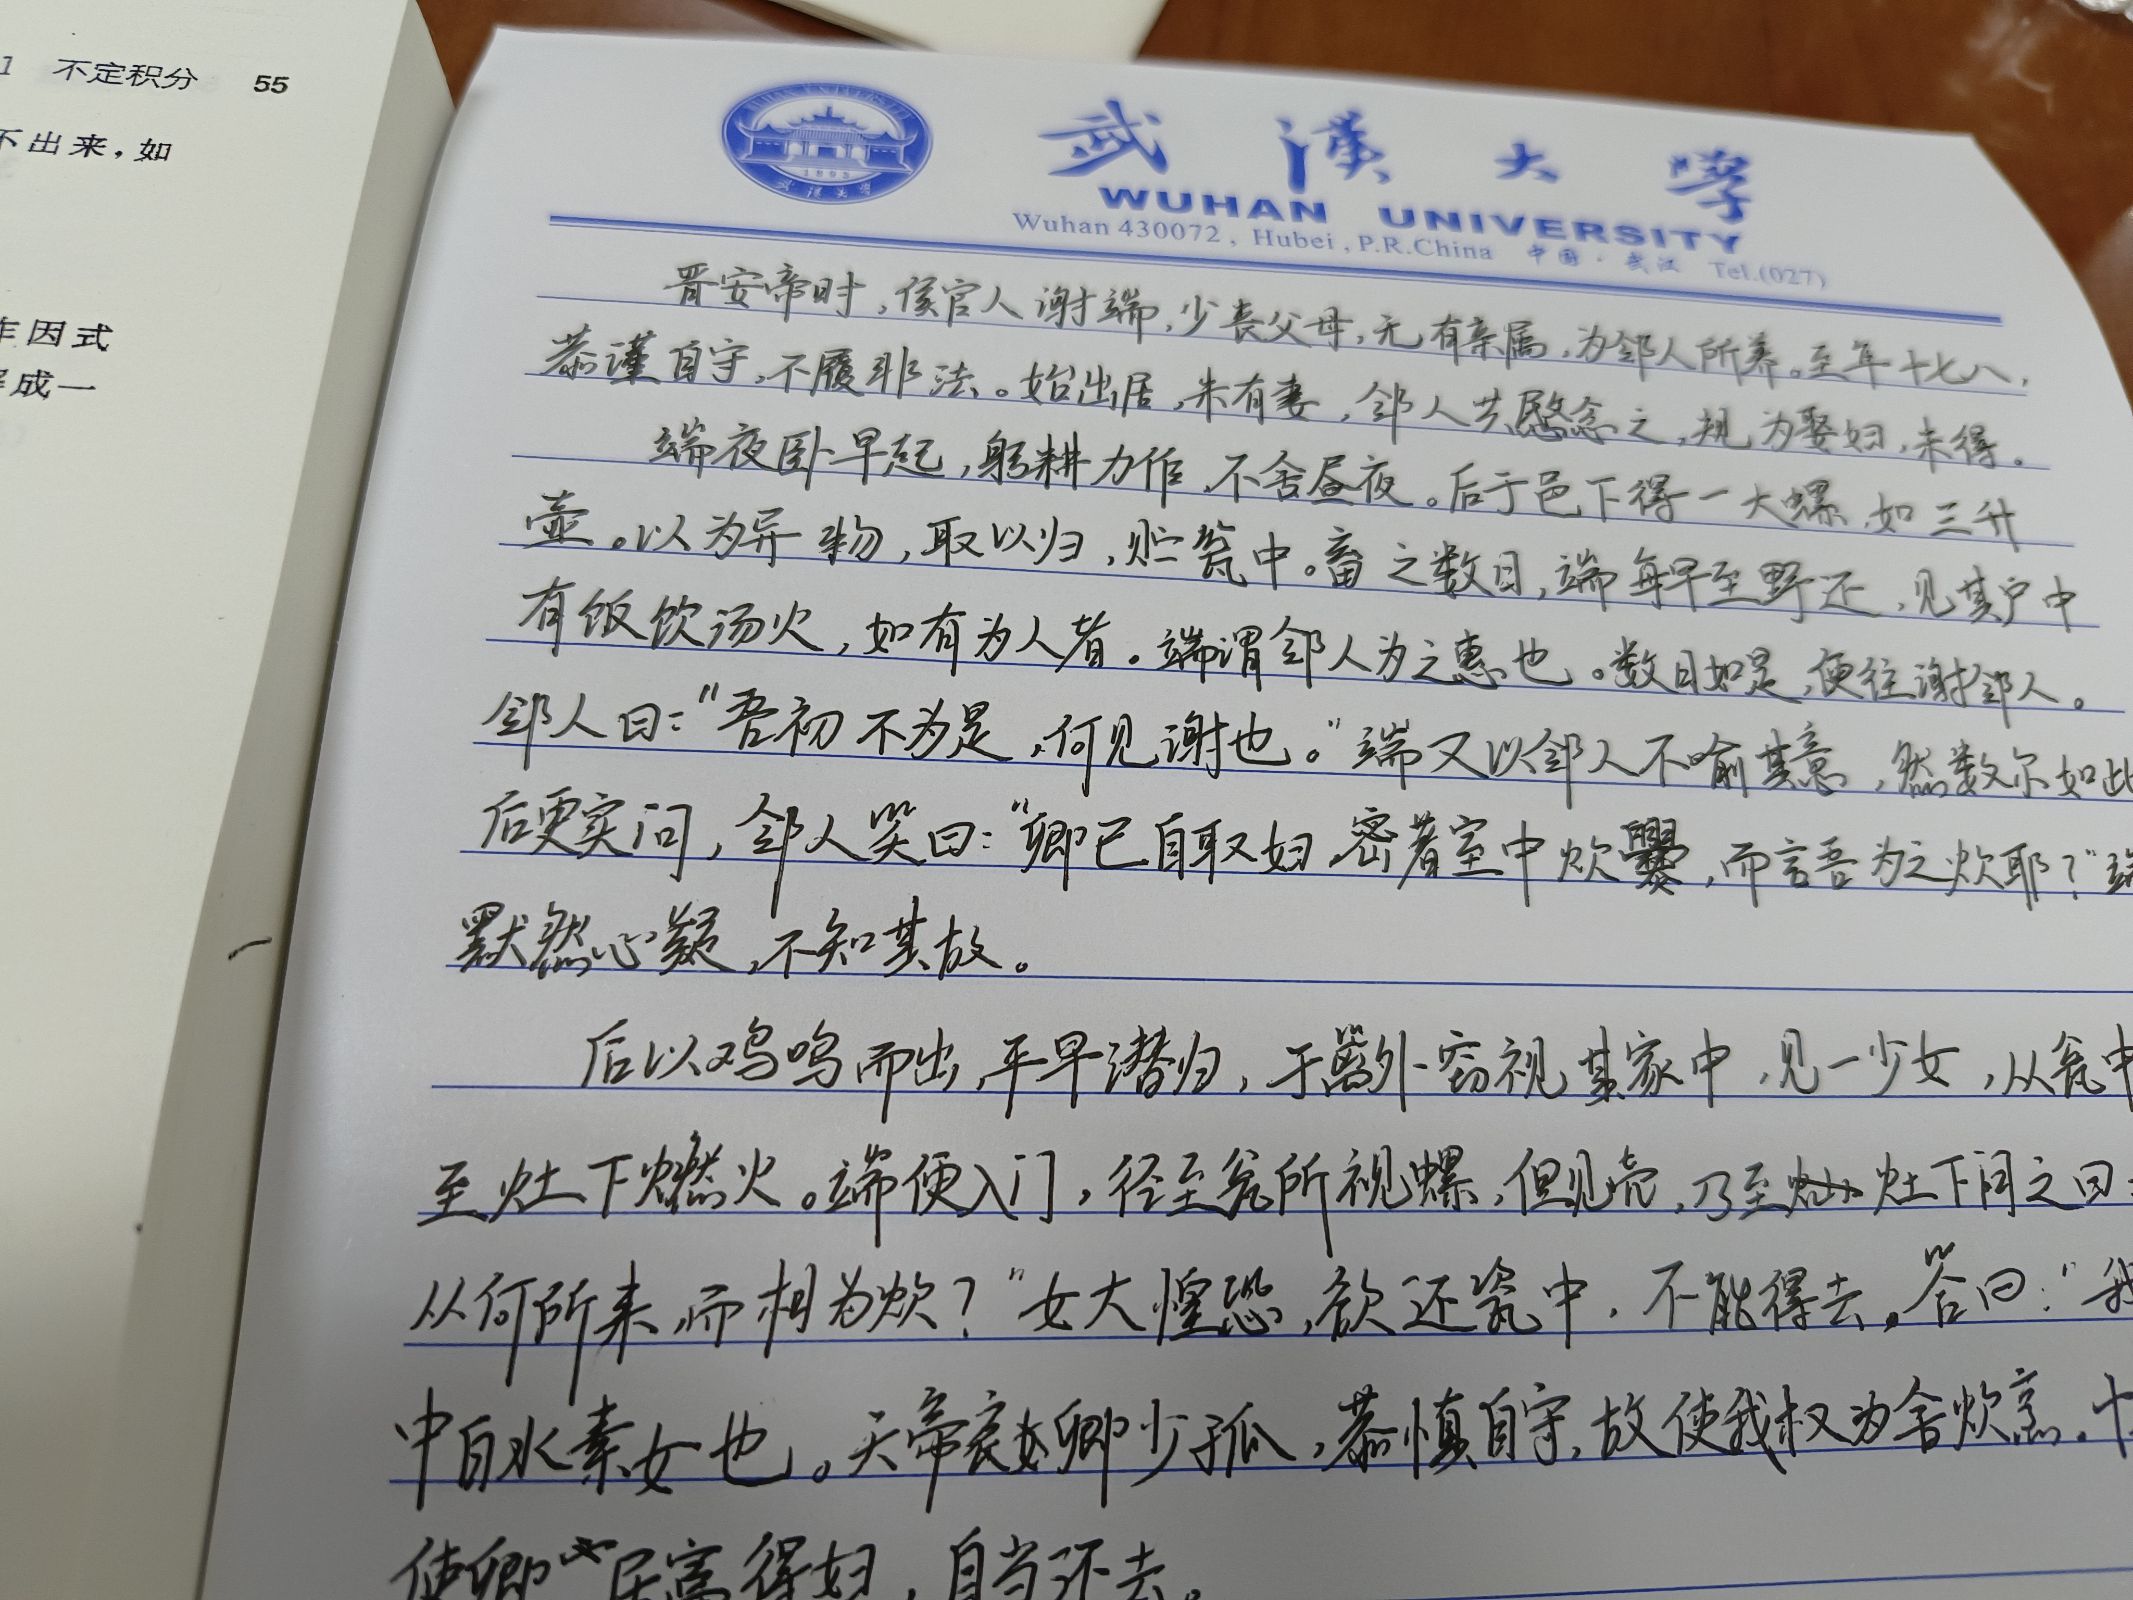 1 不定积分 55
不出来，如
因式
成一
武漢大學
WUHAN UNIVERSITY
Wuhan 430072, Hubei, P.R.China 中国·武汉 Tel.(027)
1893
武汉大学
晋安帝时，侯官人谢端，少丧父母，无有亲属，为邻人所养。至年十七八，
恭谨自守，不履非法。始出居，未有妻，邻人共愍念之，规为娶妇，未得。
端夜卧早起，躬耕力作，不舍昼夜。后于邑下得一大螺，如三升
壶。以为异物，取以归，贮瓮中。畜之数日，端每早至野还，见其户中
有饭饮汤火，如有为人者。端谓邻人为之惠也。数日如是，便往谢邻人。
邻人曰："吾初不为是，何见谢也。"端又以邻人不喻其意，然数尔如此
后更实问，邻人笑曰："卿已自取妇，密着室中炊爨，而言吾为之炊耶？"端
默然心疑，不知其故。
后以鸡鸣而出，平早潜归，于篱外窃视其家中，见一少女，从瓮中
至灶下燃火。端便入门，径至瓮所视螺，但见壳，乃至灶下问之曰：
从何所来，而相为炊？"女大惶恐，欲还瓮中，不能得去。答曰："我
中白水素女也。天帝哀卿少孤，恭慎自守，故使我权为舍炊烹。十
使卿居富得妇，自当还去。